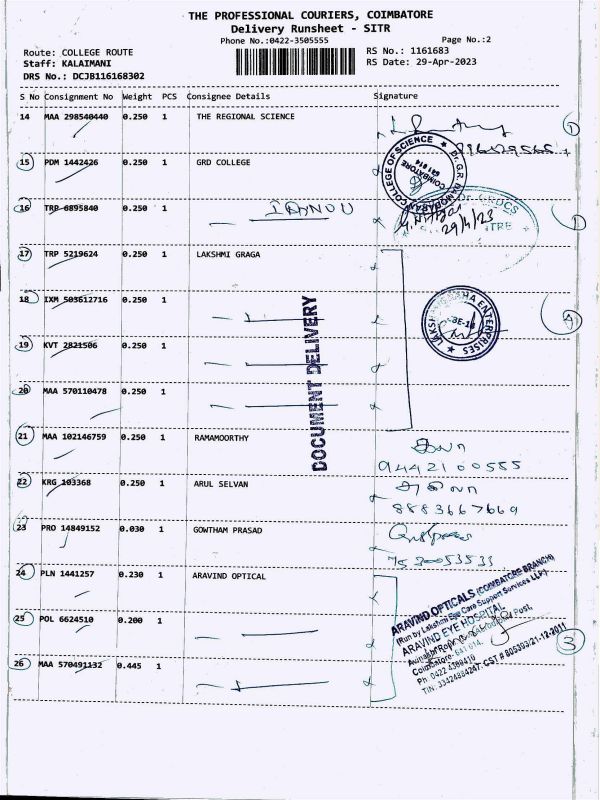 THE PROFESSIONAL COURIERS, COIMBATORE
Delivery Runsheet - SITR
Phone No.:0422-3505555 Page No.:2
Route: COLLEGE ROUTE RS No.: 1161683
Staff: KALAIMANI RS Date: 29-Apr-2023
DRS No.: DCJB116168302
S No Consignment No Weight PCS Consignee Details Signature
14 MAA 298540440 0.250 1 THE REGIONAL SCIENCE
15 PDM 1442426 0.250 1 GRD COLLEGE
COLLEGE OF SCIENCE
COIMBATORE
641 014
16 TRP 6895840 0.250 1
29/4/23
17 TRP 5219624 0.250 1 LAKSHMI GRAGA
18 IXM 503612716 0.250 1
ENTERPRISES
19 KVT 2821506 0.250 1
20 MAA 570110478 0.250 1
DOCUMENT DELIVERY
21 MAA 102146759 0.250 1 RAMAMOORTHY
9442100555
22 KRG 103368 0.250 1 ARUL SELVAN
8883667669
23 PRO 14849152 0.030 1 GOWTHAM PRASAD
7530053531
24 PLN 1441257 0.230 1 ARAVIND OPTICAL
25 POL 6624510 0.200 1
26 MAA 570491132 0.445 1
ARAVIND OPTICALS (COIMBATORE BRANCH)
(Run by Lakshmi Eye Care Support Services LLP)
ARAVIND EYE HOSPITAL
Post,
Coimbatore-641 014.
3